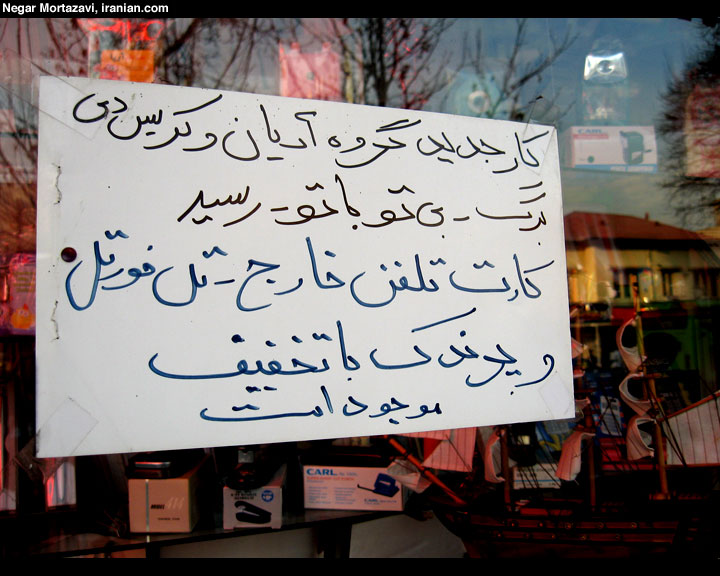 Negar Mortazavi, iranian.com
کار جدید گروه آریان و کریس دی
برگ - بی تو با تو - رسید
کارت تلفن خارج - تل فور تل
و یوندک با تخفیف
موجود است
CARL
CARL